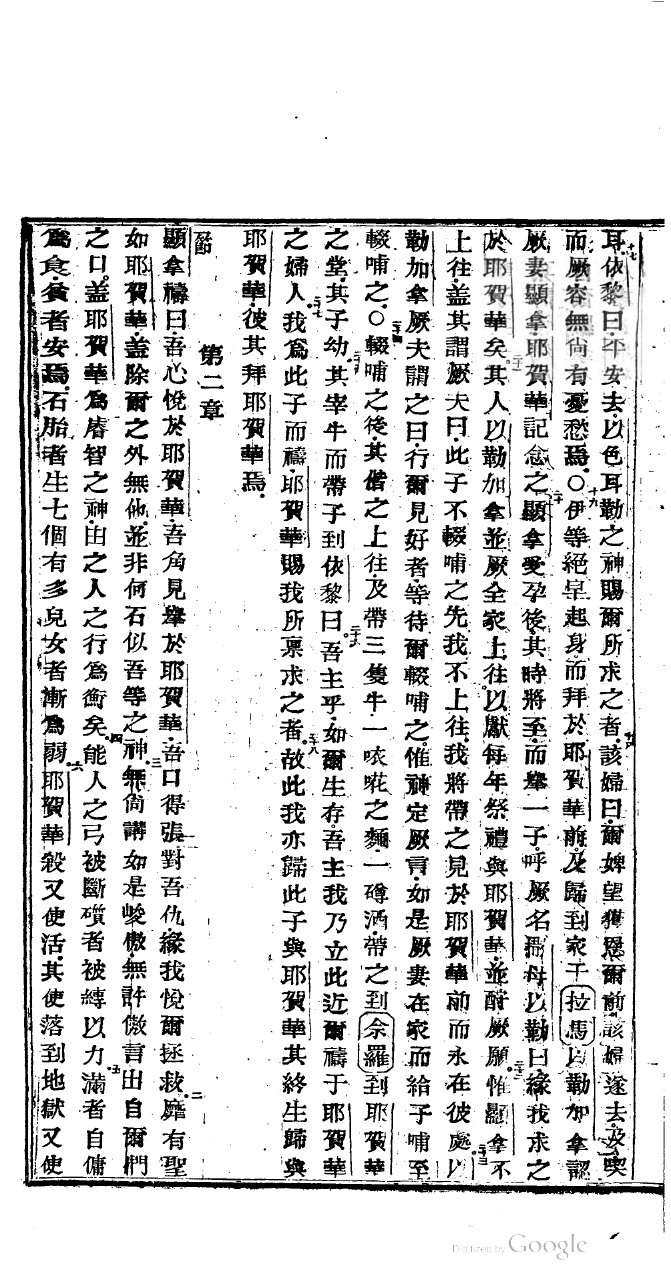 耳依黎曰平安去以色耳勒之神賜爾所求之者該婦曰爾婢望獲恩爾前該婦遂去及喫
而厥容無尙有憂愁焉○伊等絕早起身而拜於耶賀華前及歸到家于拉馬以勒加拿認
厥妻顯拿耶賀華記念之顯拿受孕後其時將至而產一子呼厥名撒母以勒曰緣我求之
於耶賀華矣其人以勒加拿並厥全家上往以獻每年祭禮與耶賀華並酧厥願惟顯拿不
上往盖其謂厥夫曰此子不輟哺之先我不上往我將帶之見於耶賀華前而永在彼處以
勒加拿厥夫謂之曰行爾見好者等待爾輟哺之惟神定厥言如是厥妻在家而給子哺至
輟哺之○輟哺之後其偕之上往及帶三隻牛一㕸𠵽之麵一罇酒帶之到佘羅到耶賀華
之堂其子幼其宰牛而帶子到依黎曰吾主乎如爾生存吾主我乃立此近爾禱于耶賀華
之婦人我爲此子而禱耶賀華賜我所禀求之者故此我亦歸此子與耶賀華其終生歸與
耶賀華彼其拜耶賀華焉
第二章
顯拿禱曰吾心悅於耶賀華吾角見舉於耶賀華吾口得張對吾仇緣我悅爾拯救靡有聖
如耶賀華盖除爾之外無他並非何石似吾等之神無尙講如是峻傲無許傲言出自爾們
之口盖耶賀華爲睿智之神由之人之行爲衡矣能人之弓被斷躓者被縛以力滿者自傭
爲食貧者安焉石胎者生七個有多兒女者漸爲弱耶賀華殺又使活其使落到地獄又使
Digitized by Google